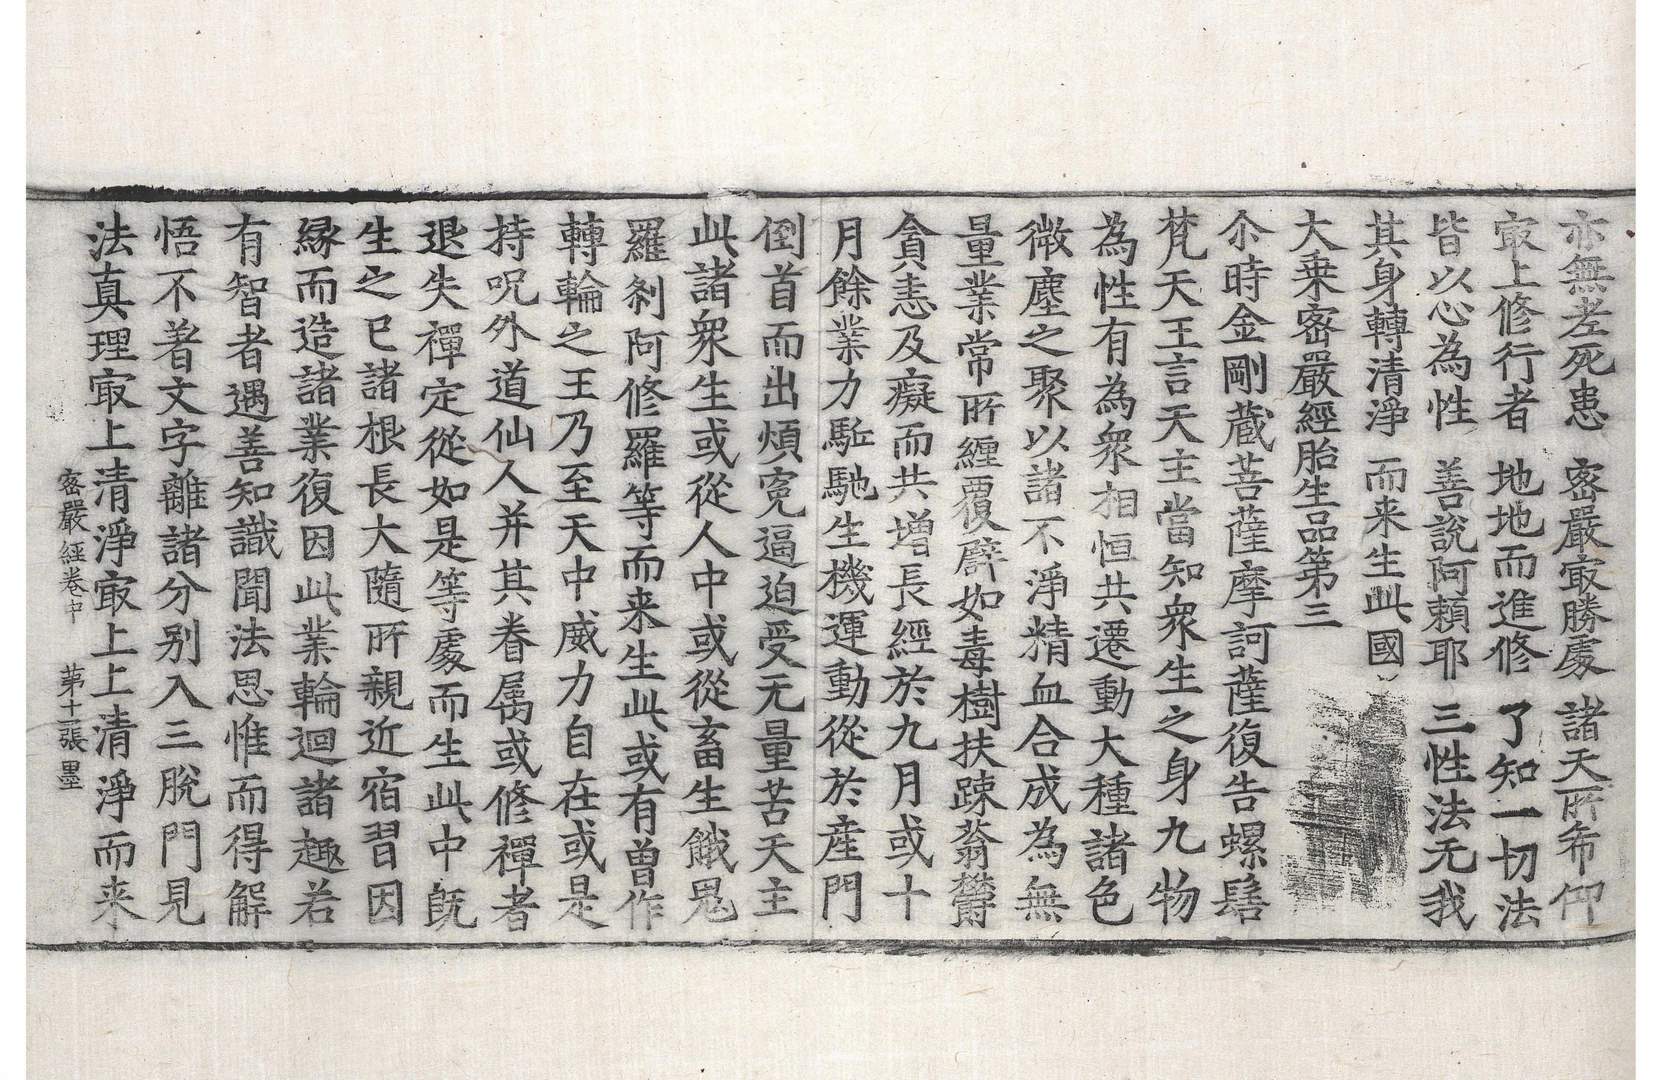 亦無老死患 密嚴冣勝處 諸天所希仰
冣上修行者 地地而進修 了知一切法
皆以心為性 善說阿賴耶 三性法无我
其身轉清淨 而来生此國
大乘密嚴經胎生品第三
尒時金剛蔵菩薩摩訶薩復告螺髻
梵天王言天主當知衆生之身九物
為性有為衆相恒共遷動大種諸色
微塵之聚以諸不淨精血合成為無
量業常所纏覆譬如毒樹扶踈蓊欝
貪恚及癡而共增長經於九月或十
月餘業力駈馳生機運動從於産門
倒首而出煩寃逼迫受无量苦天主
此諸衆生或從人中或從畜生餓鬼
羅刹阿修羅等而来生此或有曽作
轉輪之王乃至天中威力自在或是
持呪外道仙人并其眷屬或修禪者
退失禪定從如是等處而生此中旣
生之已諸根長大隨所親近宿習因
縁而造諸業復因此業輪迴諸趣若
有智者遇善知識聞法思惟而得解
悟不著文字離諸分别入三脫門見
法真理冣上清淨冣上上清淨而来
密嚴經卷中 第十一張 墨